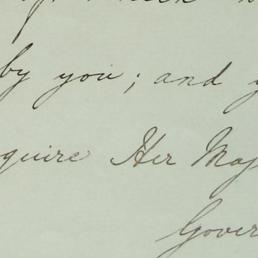 by you; and
quire Her Maj
Gover